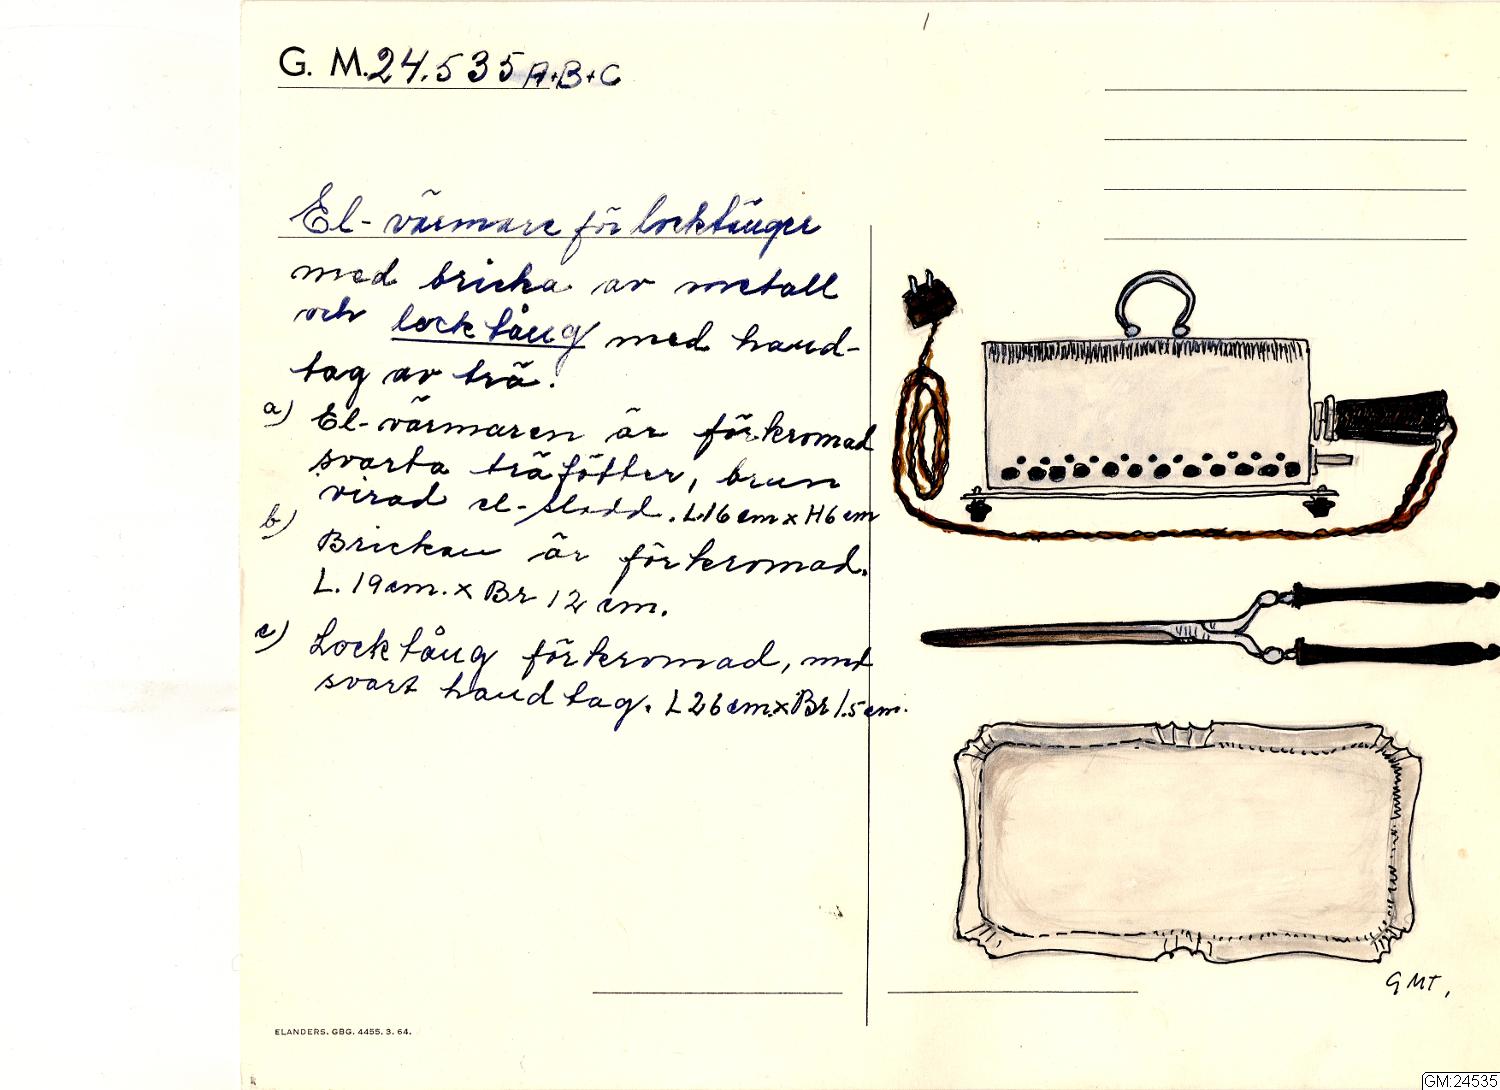 G. M. 24.535 A+B+C
El-värmare för locktänger
med bricka av metall
och locktång med hand-
tag av trä.
a) El-värmaren är förkromad
svarta träfötter, brun
virad el-sladd. L.16 cm x H6 cm
b) Brickan är förkromad.
L. 19 cm. x Br 12 cm.
c) Locktång förkromad, med
svart handtag. L 26 cm. x Br 1.5 cm.
GMT.
ELANDERS. GBG. 4455. 3. 64.
GM:24535